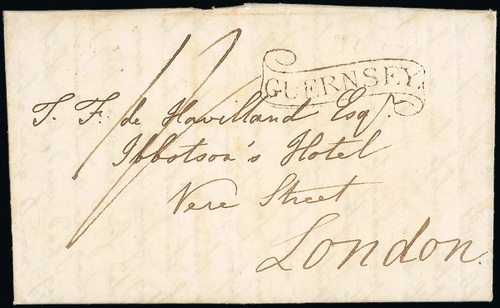 GUERNSEY
T. F. de Havilland Esqr.
Ibbotson's Hotel
Vere Street
London.